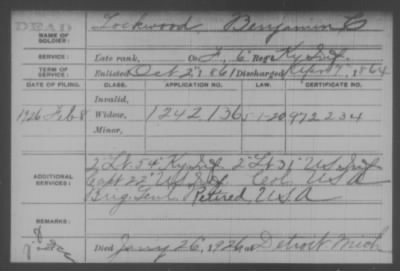 DEAD
NAME OF SOLDIER: Lockwood, Benjamin C
SERVICE: Late rank, Co. 6" Reg't Ky Inf.
TERM OF SERVICE: Enlisted Oct 2", 1861 Discharged 1864
DATE OF FILING. CLASS. APPLICATION NO. LAW. CERTIFICATE NO.
Invalid,
1926 Feb 8 Widow, 1242136 5-1-20 972234
Minor,
ADDITIONAL SERVICES: 2" Lt. 54" Ky Inf. 2" Lt 31" U.S. Inf
Capt 22" U.S. Inf. Col. U.S.A
Brig. Genl. Retired, U.S.A
REMARKS:
Died Jany 26, 1926 at Detroit Mich